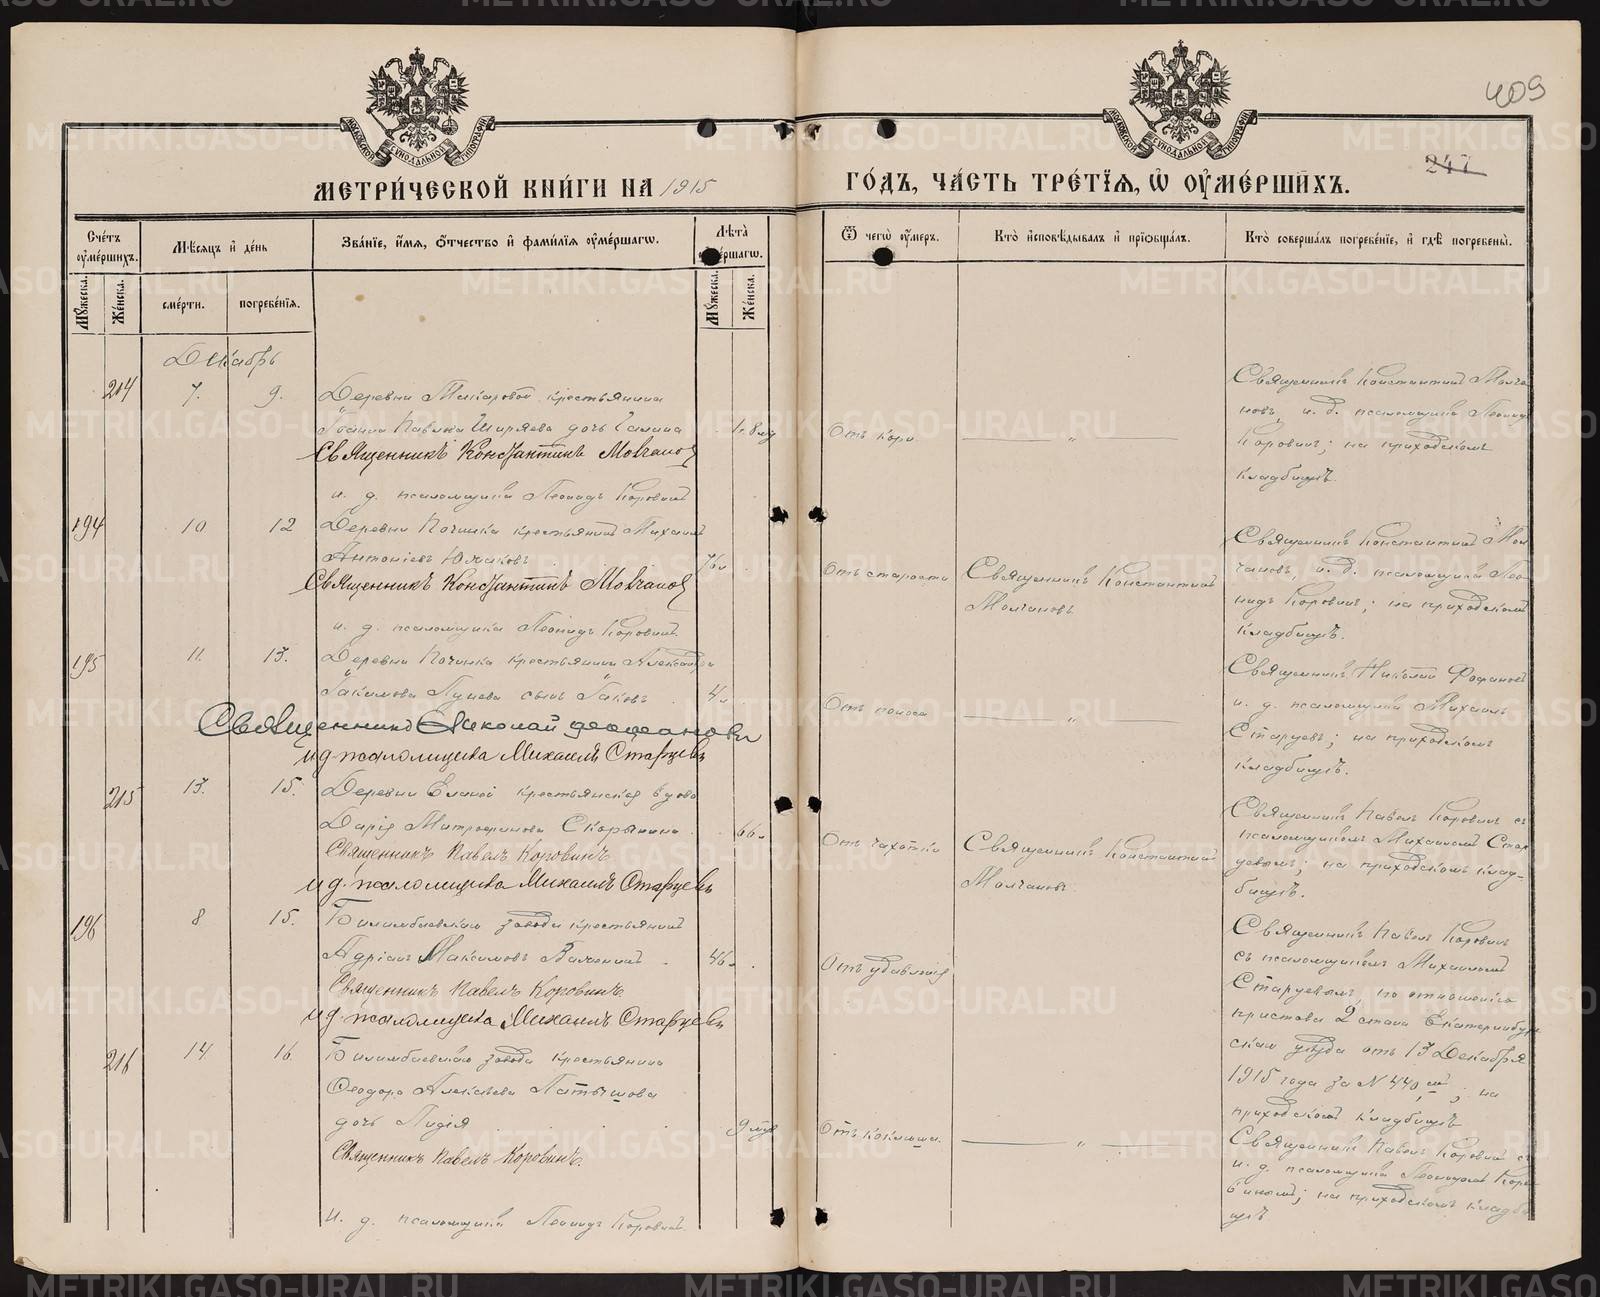 409
247
МЕТРИ́ЧЕСКОЙ КНИ́ГИ НА 1915
ГО́ДЪ, ЧА́СТЬ ТРЕ́ТЇѦ, Ѡ ОУ҆МЕ́РШИХЪ.
Сче́тъ оу҆ме́ршихъ.
Мѣ́сѧцъ и҆ де́нь
Зва́нїе, и҆́мѧ, ѻ҆́тчество и҆ фами́лїѧ оу҆ме́ршагѡ.
Лѣ́та оу҆ме́ршагѡ.
Ѿ чегѡ̀ оу҆́меръ.
Кто̀ и҆сповѣ́дывалъ и҆ прїѡбща́лъ.
Кто̀ соверша́лъ погребе́нїе, и҆ гдѣ̀ погребены̀.
Мꙋ́жеска.
Же́нска.
сме́рти.
погребе́нїѧ.
Мꙋ́жеска.
Же́нска.
Декабрь
214 7. 9. Деревни Макаровой крестьянина
Іоанна Павлова Ширяева дочь Галина 1 г. 8 м.
Священникъ Константинъ Молчановъ
и. д. псаломщика Леонидъ Коровинъ
Отъ кори
Священникъ Константинъ Молча-
новъ, и. д. псаломщика Леонидъ
Коровинъ; на приходскомъ
кладбищѣ.
194 10 12 Деревни Починка крестьянинъ Михаилъ
Антоніевъ Южаковъ 76 л.
Священникъ Константинъ Молчановъ
и. д. псаломщика Леонидъ Коровинъ.
Отъ старости
Священникъ Константинъ
Молчановъ
Священникъ Константинъ Мол-
чановъ, и. д. псаломщика Лео-
нидъ Коровинъ; на приходскомъ
кладбищѣ.
195 11. 13. Деревни Починка крестьянина Александра
Іакимова сынъ Іаковъ 4 л.
Священникъ Николай Феофановъ
и д псаломщика Михаилъ Старцевъ
Отъ поноса
Священникъ Николай Феофановъ
и. д. псаломщика Михаилъ
Старцевъ; на приходскомъ
кладбищѣ.
215 13. 15. Деревни Еланой крестьянская вдова
Дарія Митрофанова Скорынина 66 л.
Священникъ Павелъ Коровинъ
и д. псаломщика Михаилъ Старцевъ
Отъ чахотки
Священникъ Константинъ
Молчановъ
Священникъ Павелъ Коровинъ съ
псаломщикомъ Михаиломъ Стар-
цевымъ; на приходскомъ клад-
бищѣ.
196 8 15. Билимбаевскаго завода крестьянинъ
Адріанъ Максимовъ 46 л.
Священникъ Павелъ Коровинъ.
и д. псаломщика Михаилъ Старцевъ
Отъ удавленія
Священникъ Павелъ Коровинъ
съ псаломщикомъ Михаиломъ
Старцевымъ, по отношенію
пристава 2 стана Екатеринбур-
скаго уѣзда отъ 13 Декабря
1915 года за № ; на
приходскомъ кладбищѣ
216 14. 16. Билимбаевскаго завода крестьянина
Ѳеодора Алексѣева Латышова
дочь Лидія 9 мѣс.
Священникъ Павелъ Коровинъ.
и. д. псаломщика Леонидъ Коровинъ.
Отъ коклюша.
Священникъ Павелъ Коровинъ съ
и. д. псаломщика Леонидомъ Коро-
винымъ; на приходскомъ кладби-
щѣ
METRIKI.GASO-URAL.RU